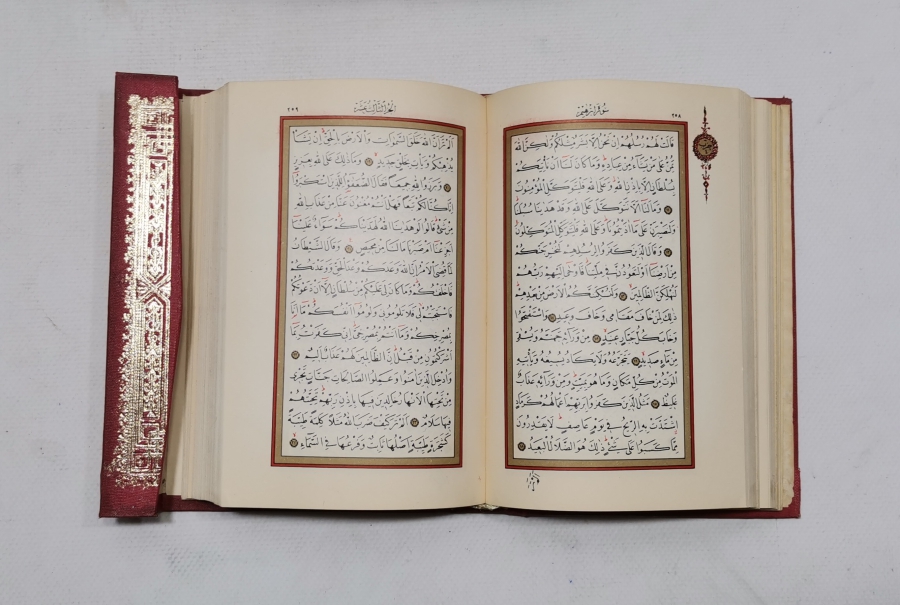 سُورَةُ اِبْرٰهِيمَ
٢٥٨
قَالَتْ لَهُمْ رُسُلُهُمْ اِنْ نَحْنُ اِلَّا بَشَرٌ مِثْلُكُمْ وَلٰكِنَّ اللّٰهَ
يَمُنُّ عَلٰى مَنْ يَشَٓاءُ مِنْ عِبَادِهِ وَمَا كَانَ لَنَٓا اَنْ نَأْتِيَكُمْ
بِسُلْطَانٍ اِلَّا بِاِذْنِ اللّٰهِ وَعَلَى اللّٰهِ فَلْيَتَوَكَّلِ الْمُؤْمِنُونَ
وَمَا لَنَٓا اَلَّا نَتَوَكَّلَ عَلَى اللّٰهِ وَقَدْ هَدٰينَا سُبُلَنَا
وَلَنَصْبِرَنَّ عَلٰى مَٓا اٰذَيْتُمُونَا وَعَلَى اللّٰهِ فَلْيَتَوَكَّلِ الْمُتَوَكِّلُونَ
وَقَالَ الَّذِينَ كَفَرُوا لِرُسُلِهِمْ لَنُخْرِجَنَّكُمْ
مِنْ اَرْضِنَٓا اَوْ لَتَعُودُنَّ فِي مِلَّتِنَا فَاَوْحٰٓى اِلَيْهِمْ رَبُّهُمْ
لَنُهْلِكَنَّ الظَّالِمِينَ وَلَنُسْكِنَنَّكُمُ الْاَرْضَ مِنْ بَعْدِهِمْ
ذٰلِكَ لِمَنْ خَافَ مَقَامِي وَخَافَ وَعِيدِ وَاسْتَفْتَحُوا
وَخَابَ كُلُّ جَبَّارٍ عَنِيدٍ مِنْ وَرَٓائِهِ جَهَنَّمُ وَيُسْقٰى
مِنْ مَٓاءٍ صَدِيدٍ يَتَجَرَّعُهُ وَلَا يَكَادُ يُسِيغُهُ وَيَأْتِيهِ
الْمَوْتُ مِنْ كُلِّ مَكَانٍ وَمَا هُوَ بِمَيِّتٍ وَمِنْ وَرَٓائِهِ عَذَابٌ
غَلِيظٌ مَثَلُ الَّذِينَ كَفَرُوا بِرَبِّهِمْ اَعْمَالُهُمْ كَرَمَادٍ
اشْتَدَّتْ بِهِ الرِّيحُ فِي يَوْمٍ عَاصِفٍ لَا يَقْدِرُونَ
مِمَّا كَسَبُوا عَلٰى شَيْءٍ ذٰلِكَ هُوَ الضَّلَالُ الْبَعِيدُ
اَلْجُزْءُ الثَّالِثَ عَشَرَ
٢٥٩
اَلَمْ تَرَ اَنَّ اللّٰهَ خَلَقَ السَّمٰوَاتِ وَالْاَرْضَ بِالْحَقِّ اِنْ يَشَأْ
يُذْهِبْكُمْ وَيَأْتِ بِخَلْقٍ جَدِيدٍ وَمَا ذٰلِكَ عَلَى اللّٰهِ بِعَزِيزٍ
وَبَرَزُوا لِلّٰهِ جَمِيعًا فَقَالَ الضُّعَفٰٓؤُا لِلَّذِينَ اسْتَكْبَرُٓوا
اِنَّا كُنَّا لَكُمْ تَبَعًا فَهَلْ اَنْتُمْ مُغْنُونَ عَنَّا مِنْ عَذَابِ اللّٰهِ
مِنْ شَيْءٍ قَالُوا لَوْ هَدٰينَا اللّٰهُ لَهَدَيْنَاكُمْ سَوَٓاءٌ عَلَيْنَٓا
اَجَزِعْنَٓا اَمْ صَبَرْنَا مَا لَنَا مِنْ مَحِيصٍ وَقَالَ الشَّيْطَانُ
لَمَّا قُضِيَ الْاَمْرُ اِنَّ اللّٰهَ وَعَدَكُمْ وَعْدَ الْحَقِّ وَوَعَدْتُكُمْ
فَاَخْلَفْتُكُمْ وَمَا كَانَ لِيَ عَلَيْكُمْ مِنْ سُلْطَانٍ اِلَّٓا اَنْ دَعَوْتُكُمْ
فَاسْتَجَبْتُمْ لِي فَلَا تَلُومُونِي وَلُومُٓوا اَنْفُسَكُمْ مَٓا اَنَا۬
بِمُصْرِخِكُمْ وَمَٓا اَنْتُمْ بِمُصْرِخِيَّ اِنِّي كَفَرْتُ بِمَٓا
اَشْرَكْتُمُونِ مِنْ قَبْلُ اِنَّ الظَّالِمِينَ لَهُمْ عَذَابٌ اَلِيمٌ
وَاُدْخِلَ الَّذِينَ اٰمَنُوا وَعَمِلُوا الصَّالِحَاتِ جَنَّاتٍ تَجْرِي
مِنْ تَحْتِهَا الْاَنْهَارُ خَالِدِينَ فِيهَا بِاِذْنِ رَبِّهِمْ تَحِيَّتُهُمْ
فِيهَا سَلَامٌ اَلَمْ تَرَ كَيْفَ ضَرَبَ اللّٰهُ مَثَلًا كَلِمَةً طَيِّبَةً
كَشَجَرَةٍ طَيِّبَةٍ اَصْلُهَا ثَابِتٌ وَفَرْعُهَا فِي السَّمَٓاءِ